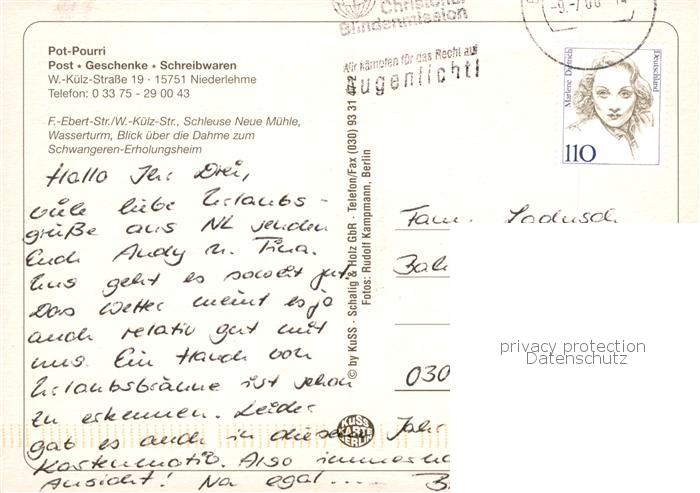 Christoffel
Blindenmission
-9.-7 00 - 14
Wir kämpfen für das Recht auf
Augenlicht!
Marlene Dietrich
Deutschland
110
Pot-Pourri
Post • Geschenke • Schreibwaren
W.-Külz-Straße 19 · 15751 Niederlehme
Telefon: 0 33 75 - 29 00 43
F.-Ebert-Str./W.-Külz-Str., Schleuse Neue Mühle,
Wasserturm, Blick über die Dahme zum
Schwangeren-Erholungsheim
Hallo Ihr Drei,
viele liebe Urlaubs-
grüße aus NL senden
Euch Andy u. Tina.
Uns geht es soweit gut.
Das Wetter meint es ja
auch relativ gut mit
uns. Ein Hauch von
Urlaubsbräune ist schon
zu erkennen. Leider
gab es auch in diesem Jahr
Kartenmotiv. Also immer
Ansicht! Na egal ....
© by KuSS · Schalig & Holz GbR · Telefon/Fax (030) 93 31
Fotos: Rudolf Kampmann, Berlin
KUSS
KARTE
BERLIN
Fam.
Bah
030
privacy protection
Datenschutz